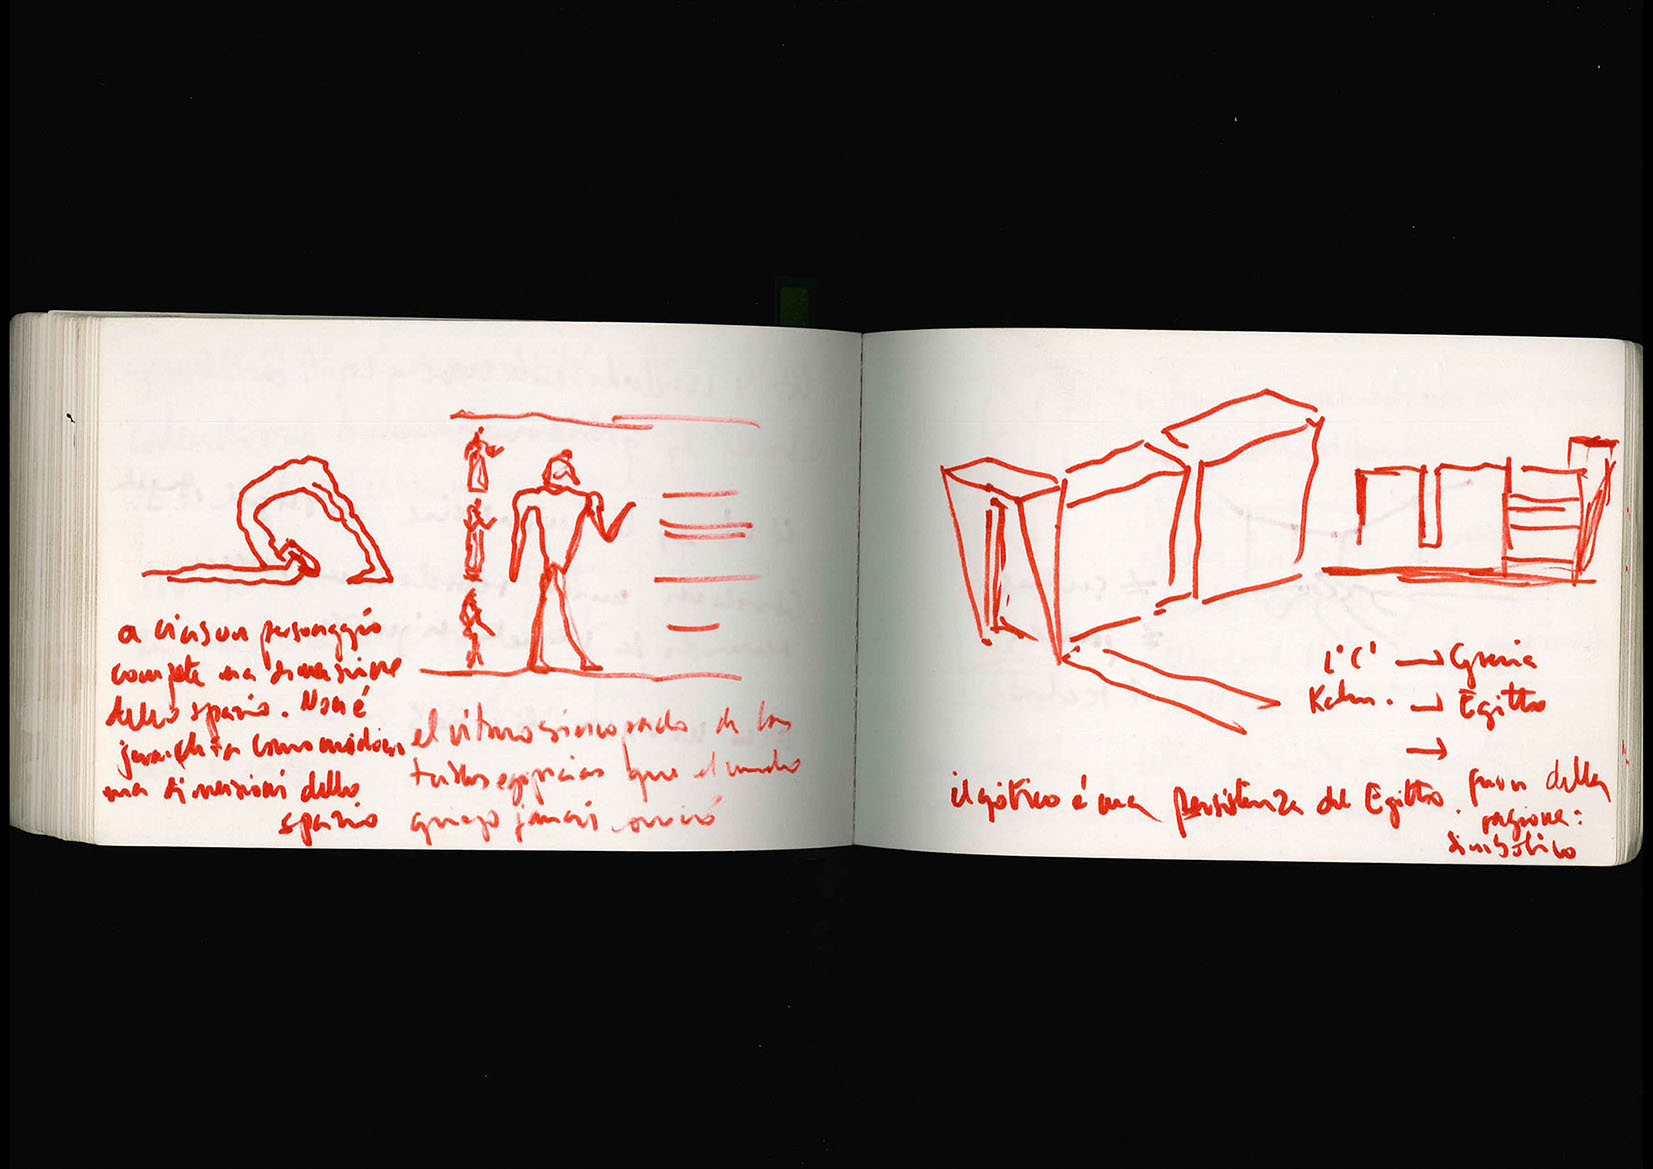 a ciascun personaggio
compete una dimensione
dello spazio. Non é
jerarchia come medioev
ma dimensioni dello
spazio
el ritmo sincopado de las
tumbas egipcias que el mundo
griego jamás
L'C' → Grecia
Kahn. → Egitto
→
il gótico é una persistenza del Egitto. fuori della
ragione:
simbólico